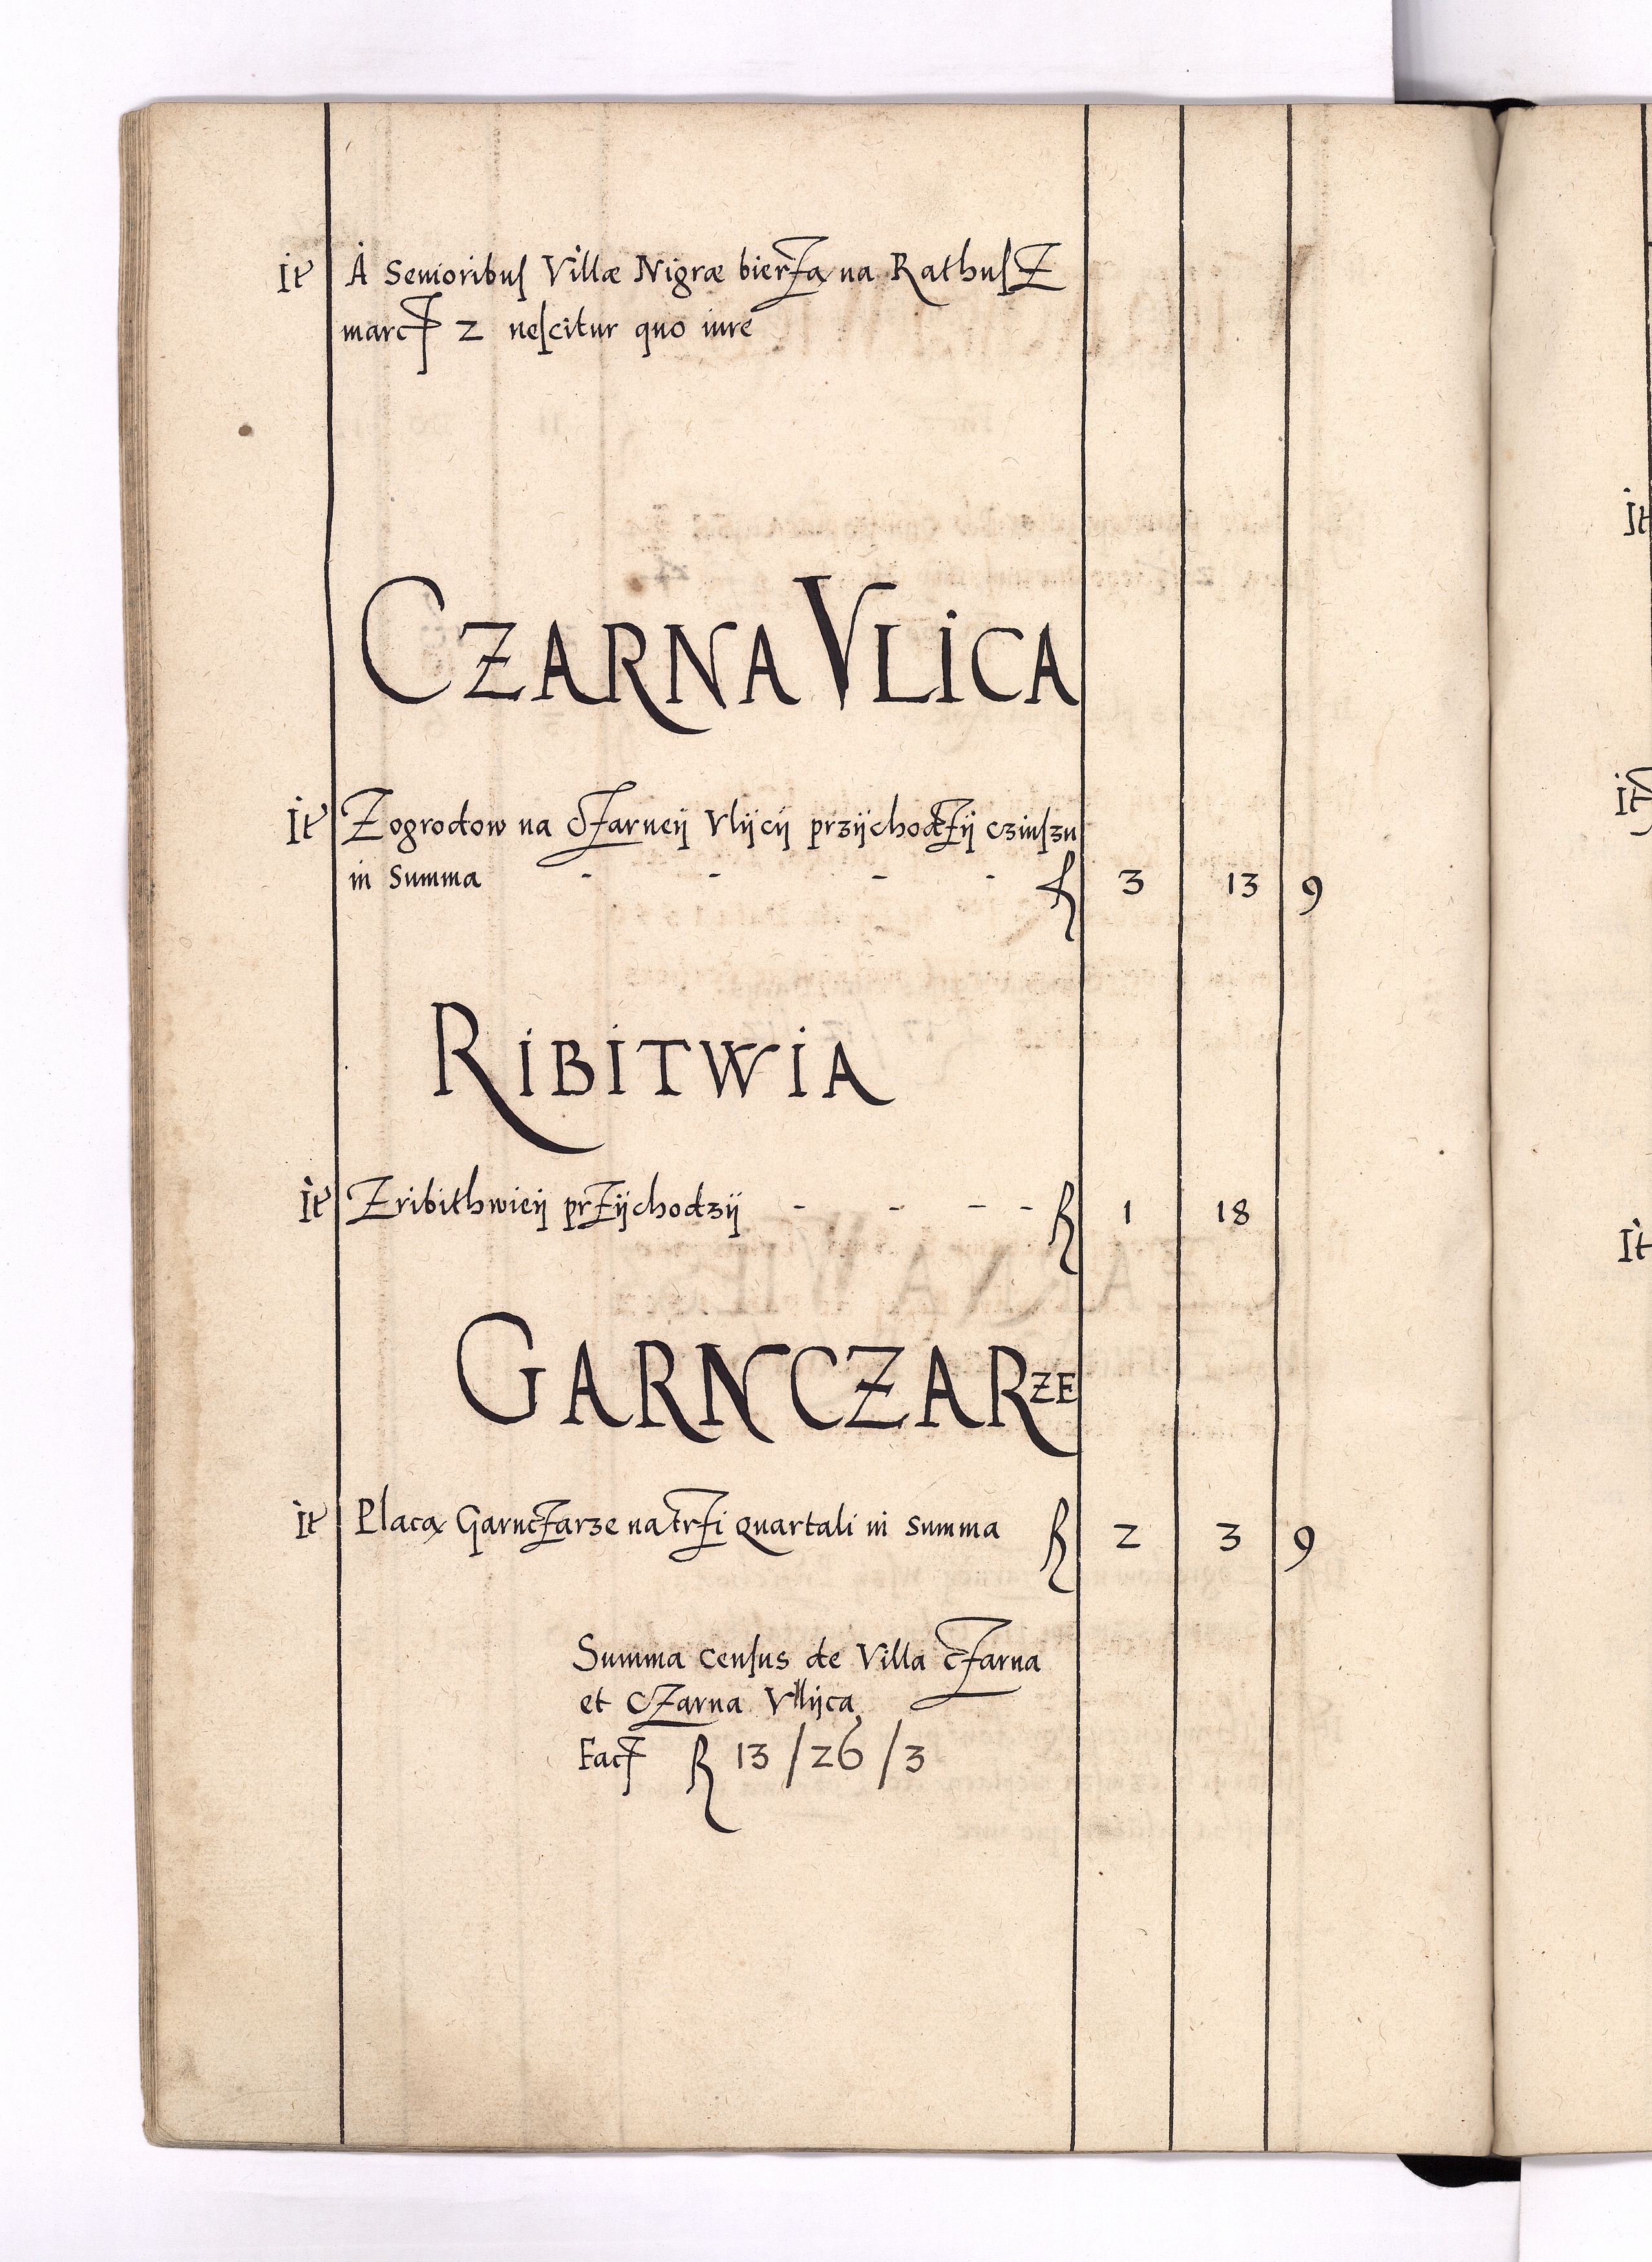 It A Senioribuſ Villæ Nigræ bierzą na RathuſZ
marcz 2 neſcitur quo iure
CZARNA VLICA
It Zogrodow na czarneÿ Vlÿcÿ przÿchodzÿ czinſzu
in Summa - - - - 3 13 9
RIBITWIA
It Zribithwieÿ przÿchodzÿ - - - - 1 18
GARNCZARZE
It Placą Garnczarze na trzi Quartali in Summa 2 3 9
Summa cenſus de Villa czarna
et czarna Vllÿca
Fact 13 / 26 / 3
It
It
It